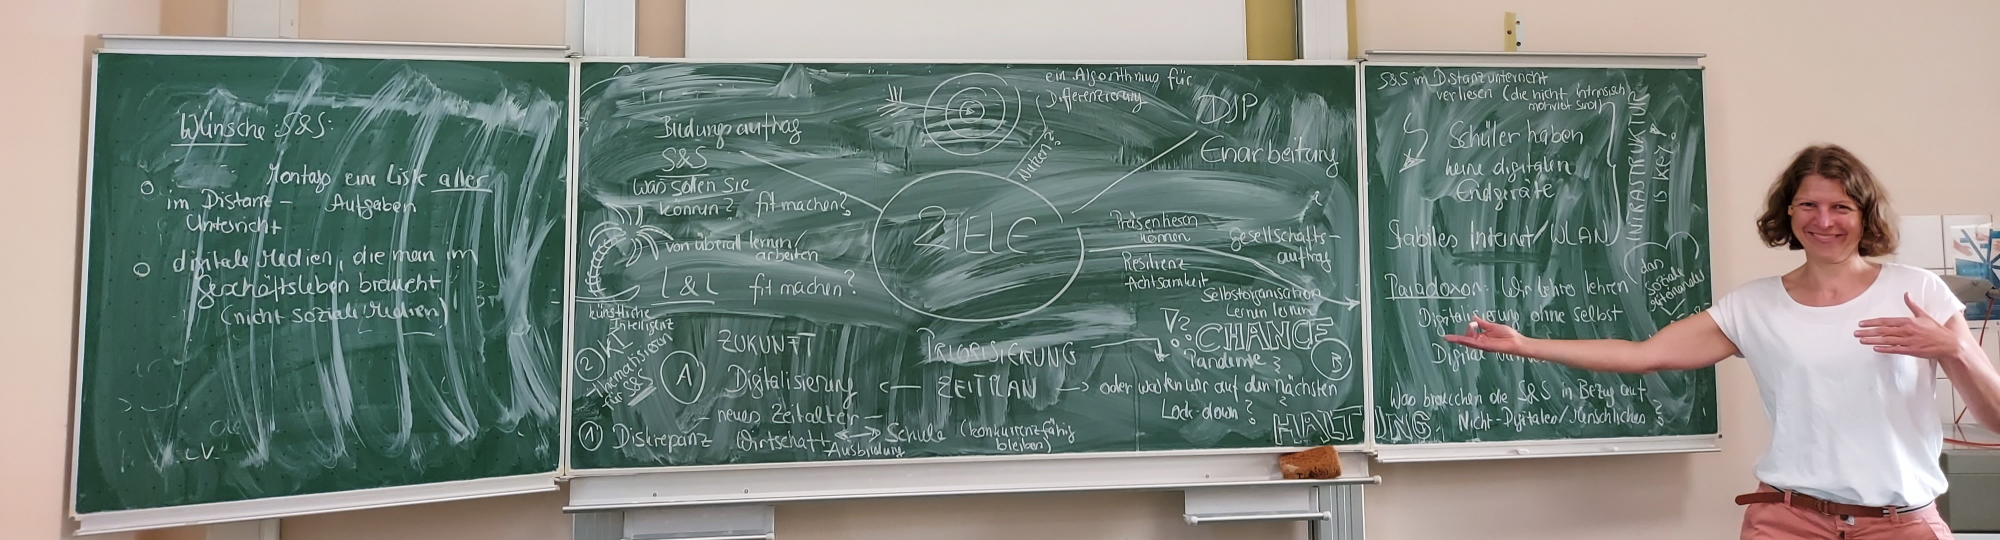 Wünsche S&S:
Montags eine Liste aller
im Distanz- Aufgaben
Unterricht
digitale Medien, die man im
Geschäftsleben braucht
(nicht soziale Medien)
ein Algorithmus für
Differenzierung
Nutzen?
Bildungsauftrag
S&S
was sollen sie
können? fit machen?
von überall lernen/
arbeiten
L&L fit machen?
ZIELE
DSP
Einarbeitung
Präsentieren
können
Resilienz
Achtsamkeit
gesellschafts-
auftrag
Selbstorganisation
Lernen lernen
künstliche
Intelligenz
② KI
thematisieren
für S&S
Ⓐ
ZUKUNFT
Digitalisierung
– neues Zeitalter –
PRIORISIERUNG
<— ZEITPLAN —>
CHANCE
Pandemie?
Ⓑ
oder warten wir auf den nächsten
Lock-down?
① Diskrepanz Wirtschaft <—> Schule (konkurrenzfähig
Ausbildung bleiben)
HALTUNG
S&S im Distanzunterricht
verliesen (die nicht intrinsisch
motiviert sind)
Schüler haben
keine digitalen
Endgeräte
INFRASTRUKTUR
IS KEY!
Stabiles Internet/WLAN
das
soziale
Paradoxon: Wir Lehrer lehren
Digitalisierung ohne selbst
Digital
Was brauchen die S&S in Bezug auf
Nicht-Digitales/Menschliches?